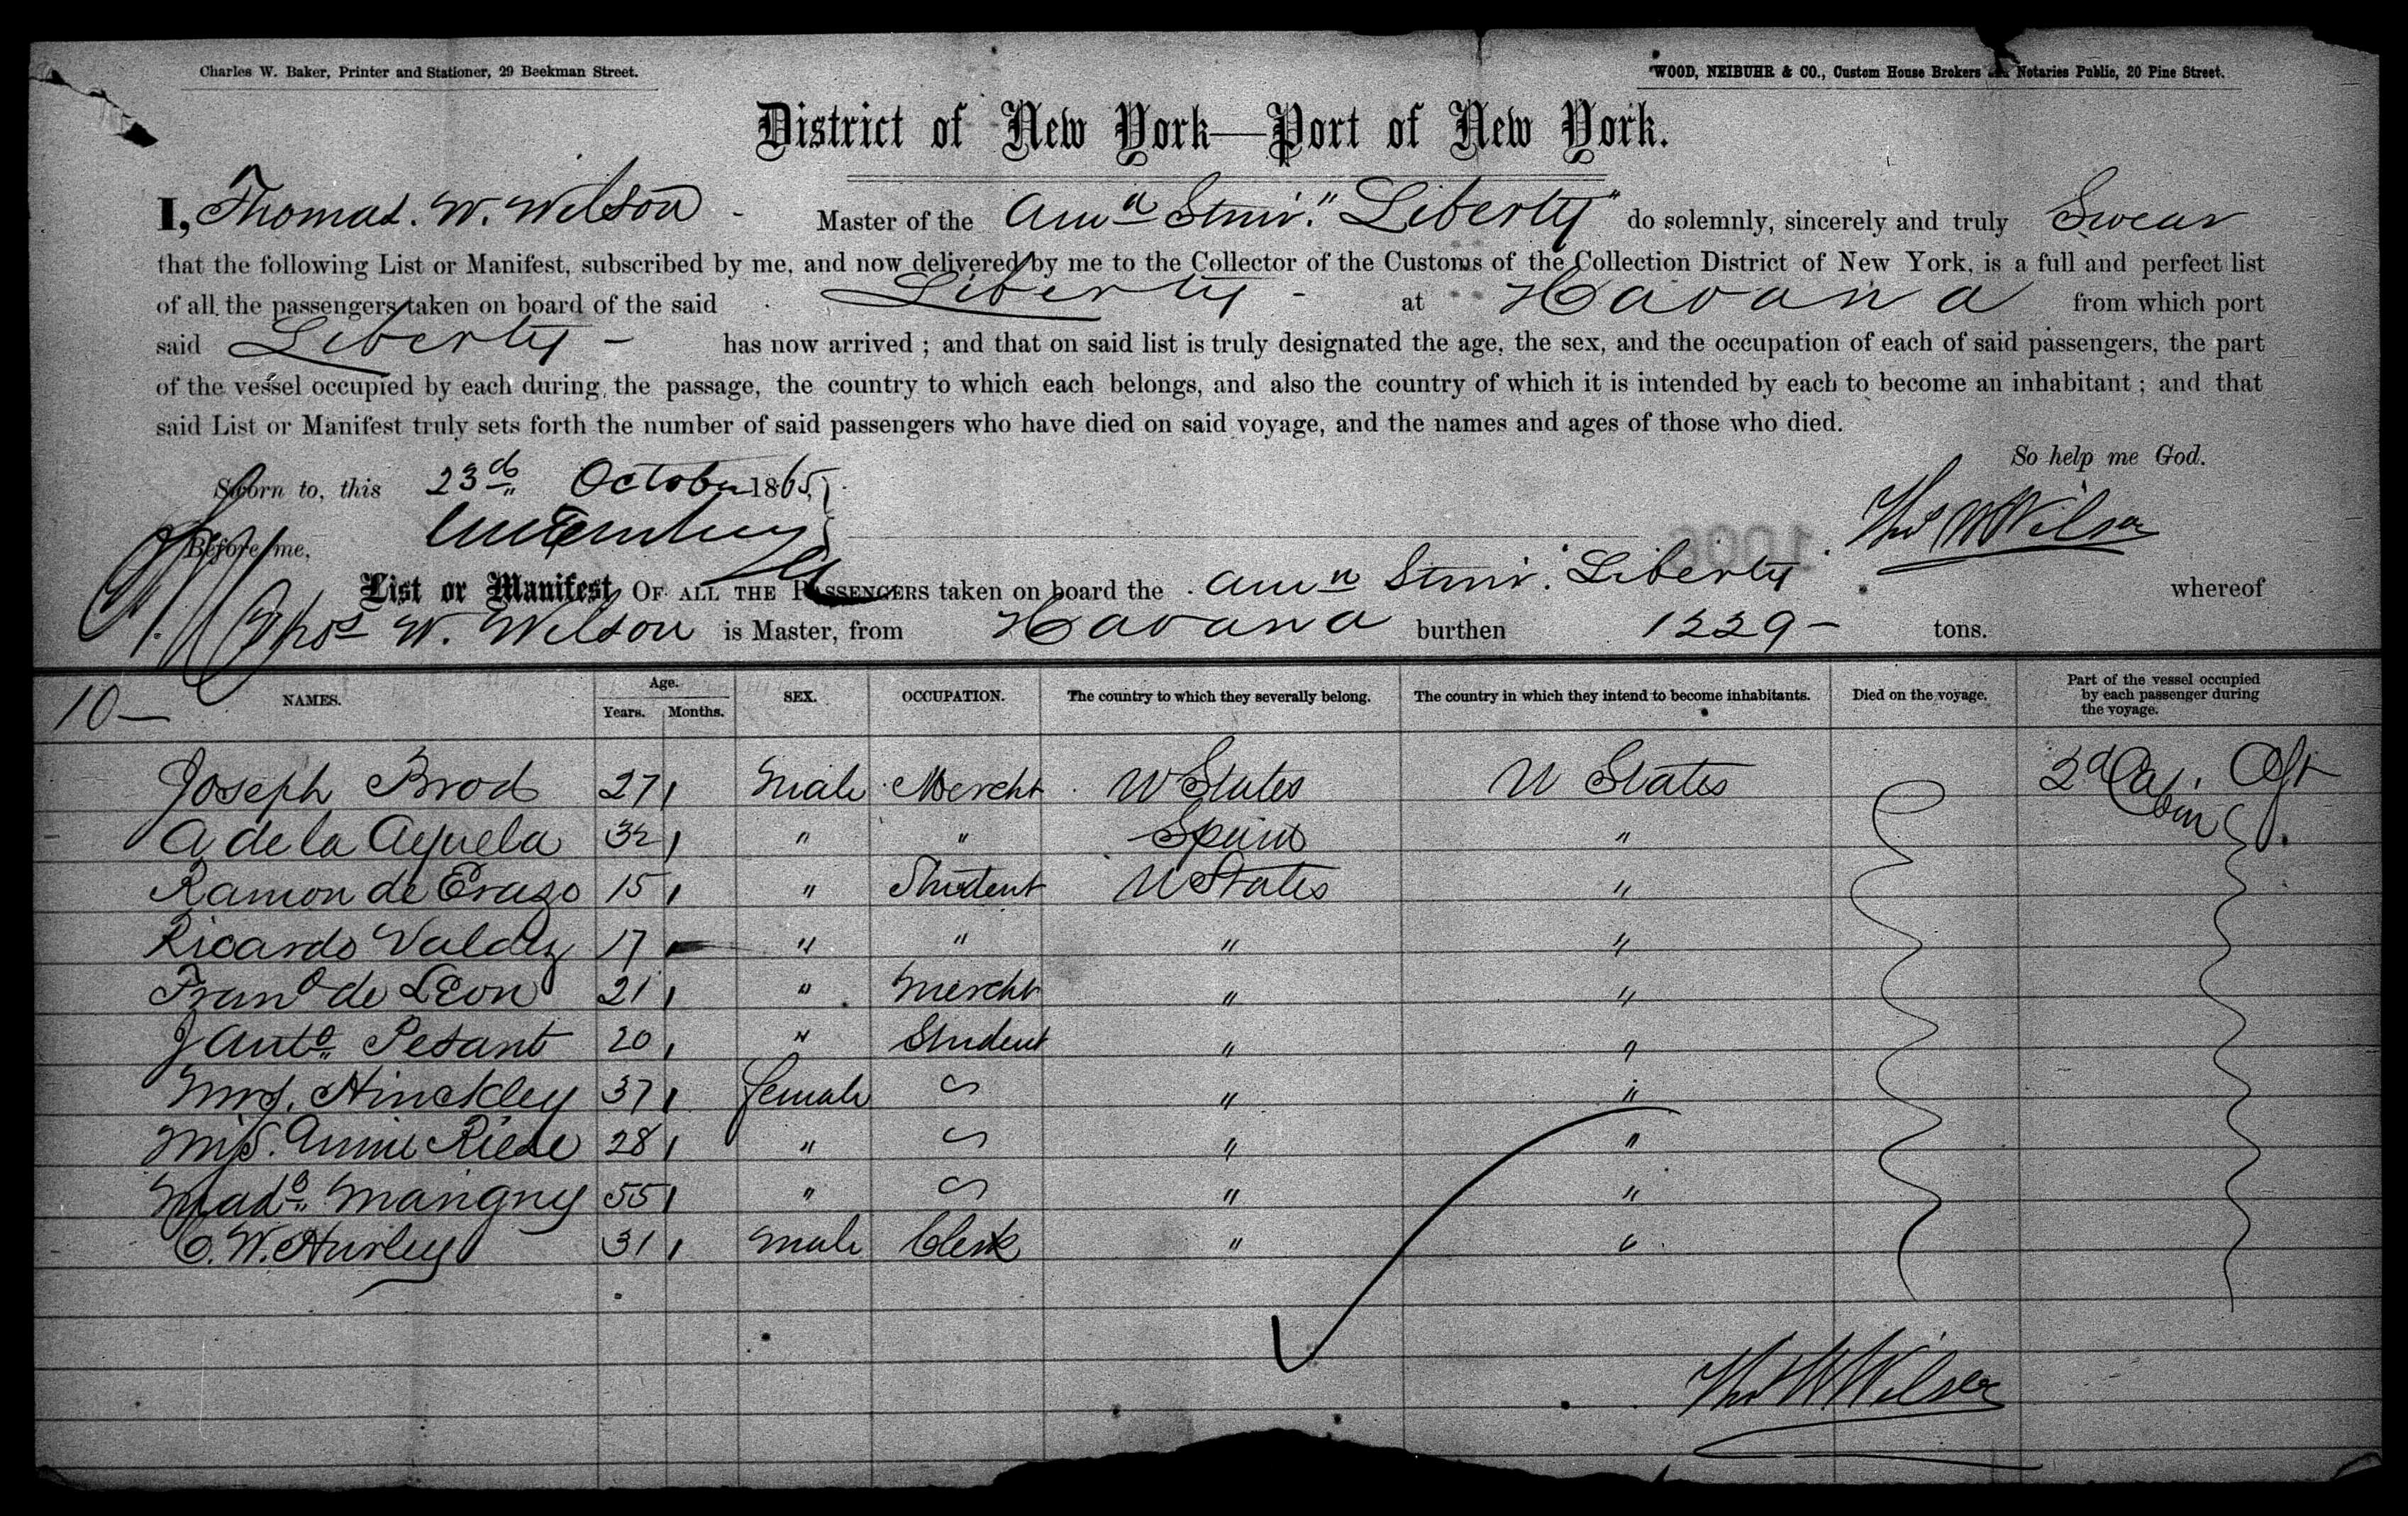 Charles W. Baker, Printer and Stationer, 29 Beekman Street.
WOOD, NEIBUHR & CO., Custom House Brokers Notaries Public, 20 Pine Street.
District of New York—Port of New York.
I, Thomas. W. Wilson - Master of the Amn Stmr. "Liberty" do solemnly, sincerely and truly Swear
that the following List or Manifest, subscribed by me, and now delivered by me to the Collector of the Customs of the Collection District of New York, is a full and perfect list
of all the passengers taken on board of the said Liberty - at Havana from which port
said Liberty - has now arrived; and that on said list is truly designated the age, the sex, and the occupation of each of said passengers, the part
of the vessel occupied by each during the passage, the country to which each belongs, and also the country of which it is intended by each to become an inhabitant; and that
said List or Manifest truly sets forth the number of said passengers who have died on said voyage, and the names and ages of those who died.
So help me God.
Sworn to, this 23d October 1865
Before me, Thos W Wilson
1006
List or Manifest OF ALL THE PASSENGERS taken on board the Amn Stmr. Liberty whereof
Thos W. Wilson is Master, from Havana burthen 1229 - tons.
10 — NAMES. Age. Years. Months. SEX. OCCUPATION. The country to which they severally belong. The country in which they intend to become inhabitants. Died on the voyage. Part of the vessel occupied by each passenger during the voyage.
Joseph Brod 27 Male Mercht U States U States 2d Cabin Aft
A de la Ayuela 32 " " Spain "
Ramon de Eraso 15 " Student U States "
Ricardo Valdez 17 " " " "
Frano de Leon 21 " Mercht " "
J Anto Pesant 20 " Student " "
Mrs. Hinckley 37 female " "
Miss. Annie Riese 28 " " "
Made Mangny 55 " " "
C. W. Hurley 31 Male Clerk " "
Thos W Wilson